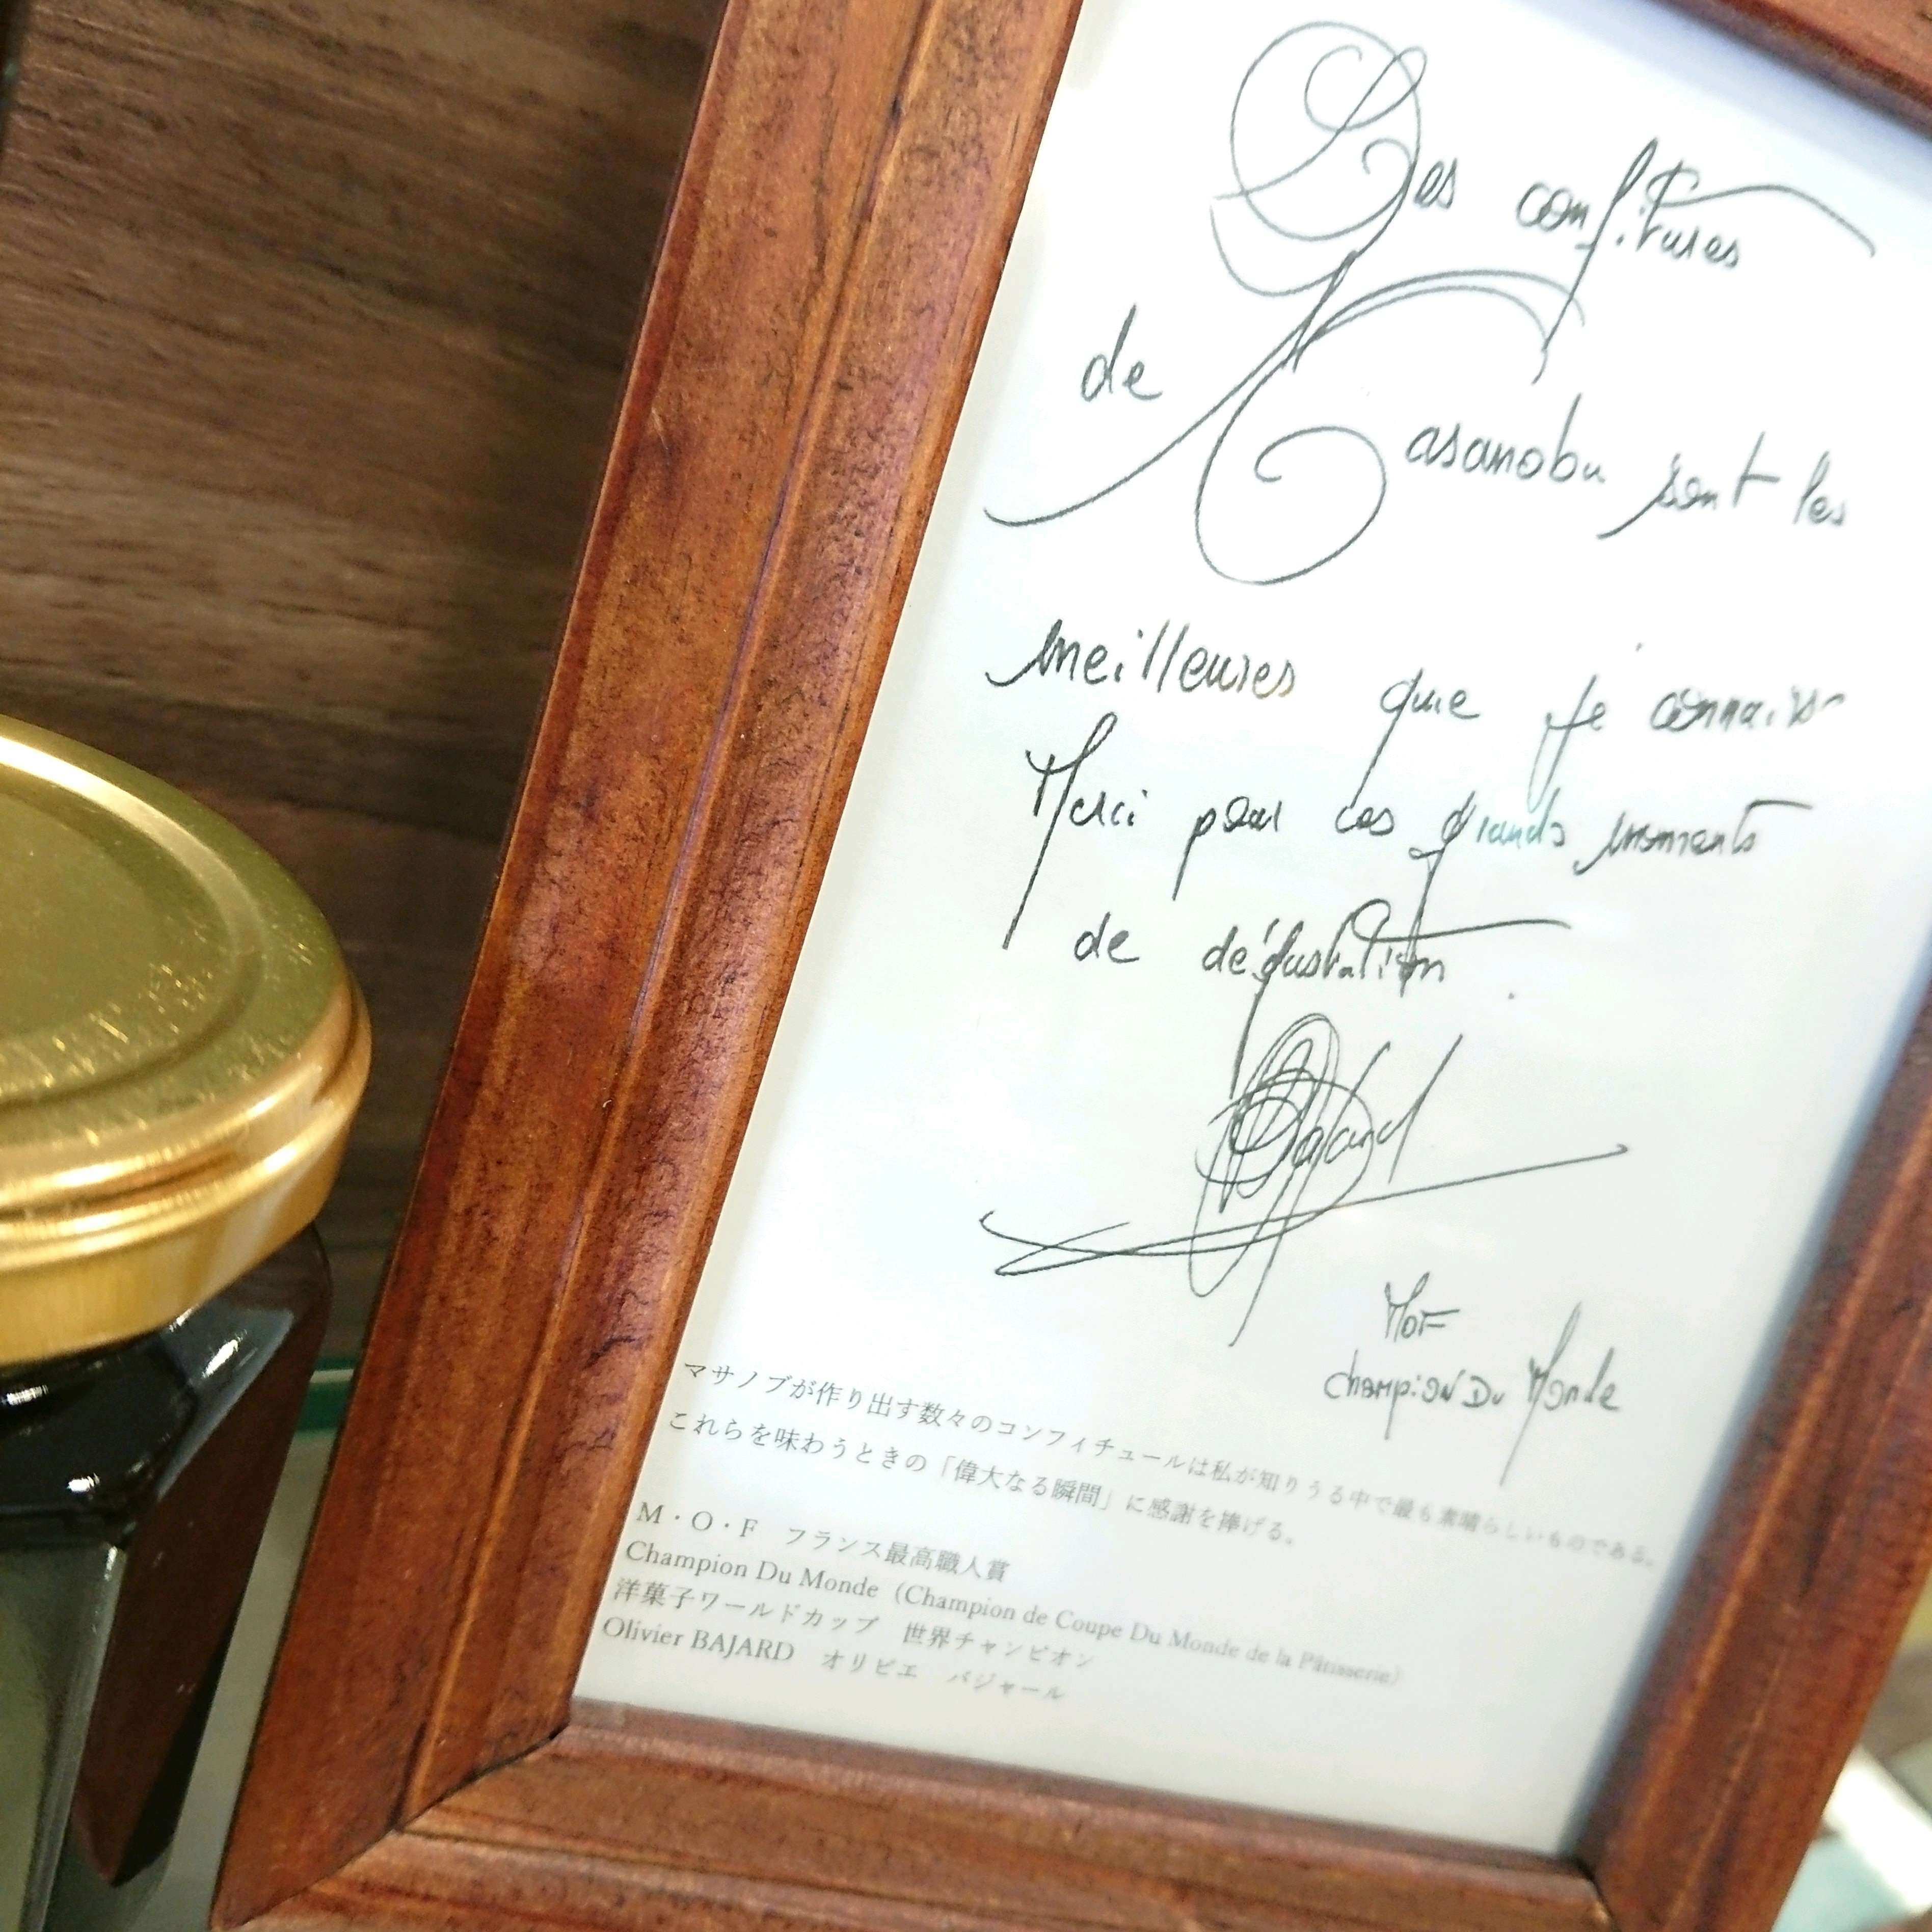 Les confitures
de Masanobu sont les
meilleures que je connaisse
Merci pour ces grands moments
de dégustation.
Bajard
MOF
Champion Du Monde
マサノブが作り出す数々のコンフィチュールは私が知りうる中で最も素晴らしいものである。
これらを味わうときの「偉大なる瞬間」に感謝を捧げる。
M・O・F　フランス最高職人賞
Champion Du Monde（Champion de Coupe Du Monde de la Pâtisserie）
洋菓子ワールドカップ　世界チャンピオン
Olivier BAJARD　オリビエ　バジャール